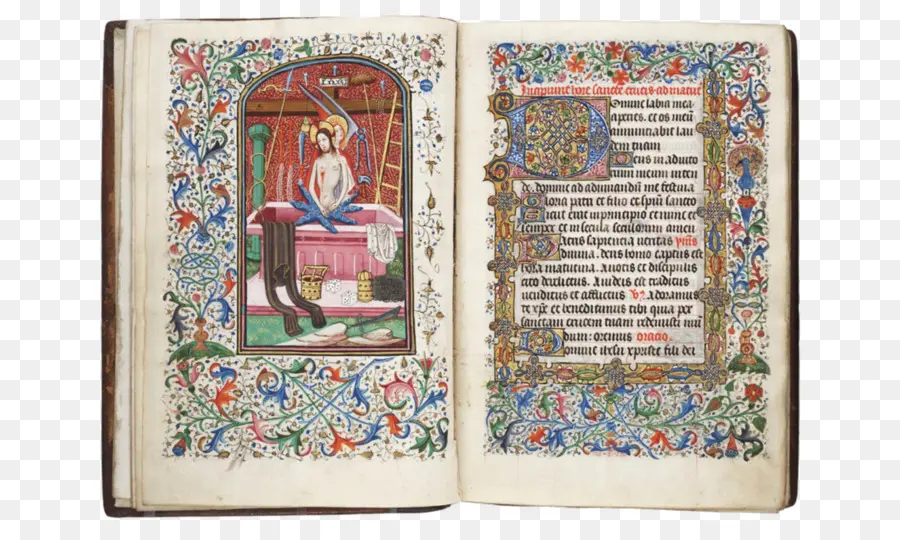 INRI
Incipiunt hore sancte crucis ad matut
Domine labia mea
aperies. et os meū
annunciabit lau
dem tuam
Deus in adiuto
rium meum inten
de. domine ad adiuuandū me festina
Gloria patri et filio et spūi sancto
sicut erat in principio et nunc et
semper et in secula seculorum amen
Patris sapientia veritas
diuina. deus homo captus est
hora matutina. A notis et discipulis
cito derelictus. A iudeis est traditus
venditus et afflictus V Adoramus
te xpē et benedicimus tibi quia per
sanctam crucem tuam redemisti mū
dum: oremus oratio
Domine ihesu xpriste fili dei